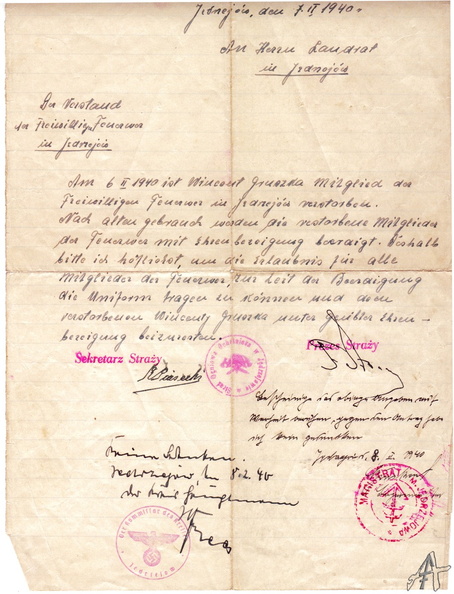 Jedrejów, den 7.II 1940.
An Herrn Landrat
in Jedrejów
Der Vorstand
der Freiwillige Feuerwer
in Jedrejów
Am 6 II 1940 ist Wincent Gruszka Mitglied der
Freiwilligen Feuerwer in Jedrejów verstorben.
Nach alten gebrauch werden die verstorbene Mitglieder
der Feuerwer mit Ehrenbereigung beerdigt. Deshalb
bitte ich höflichst, um die Erlaubnis für alle
Mitglieder der Feuerwer zur Zeit der Beerdigung
die Uniform tragen zu können und dem
verstorbenen Wincenty Gruszka unter Ehren-
bereigung beizuwonen.
Sekretarz Straży
Prezes Straży
Bescheinige das obige Angaben mit
Wahrheit gegen den Antrag habe
ich kein
8. 2. 1940
Keine Bedenken.
Jedrzejów, 8.2.40
Der Kreishauptmann
MAGISTRAT M. JĘDRZEJOWA